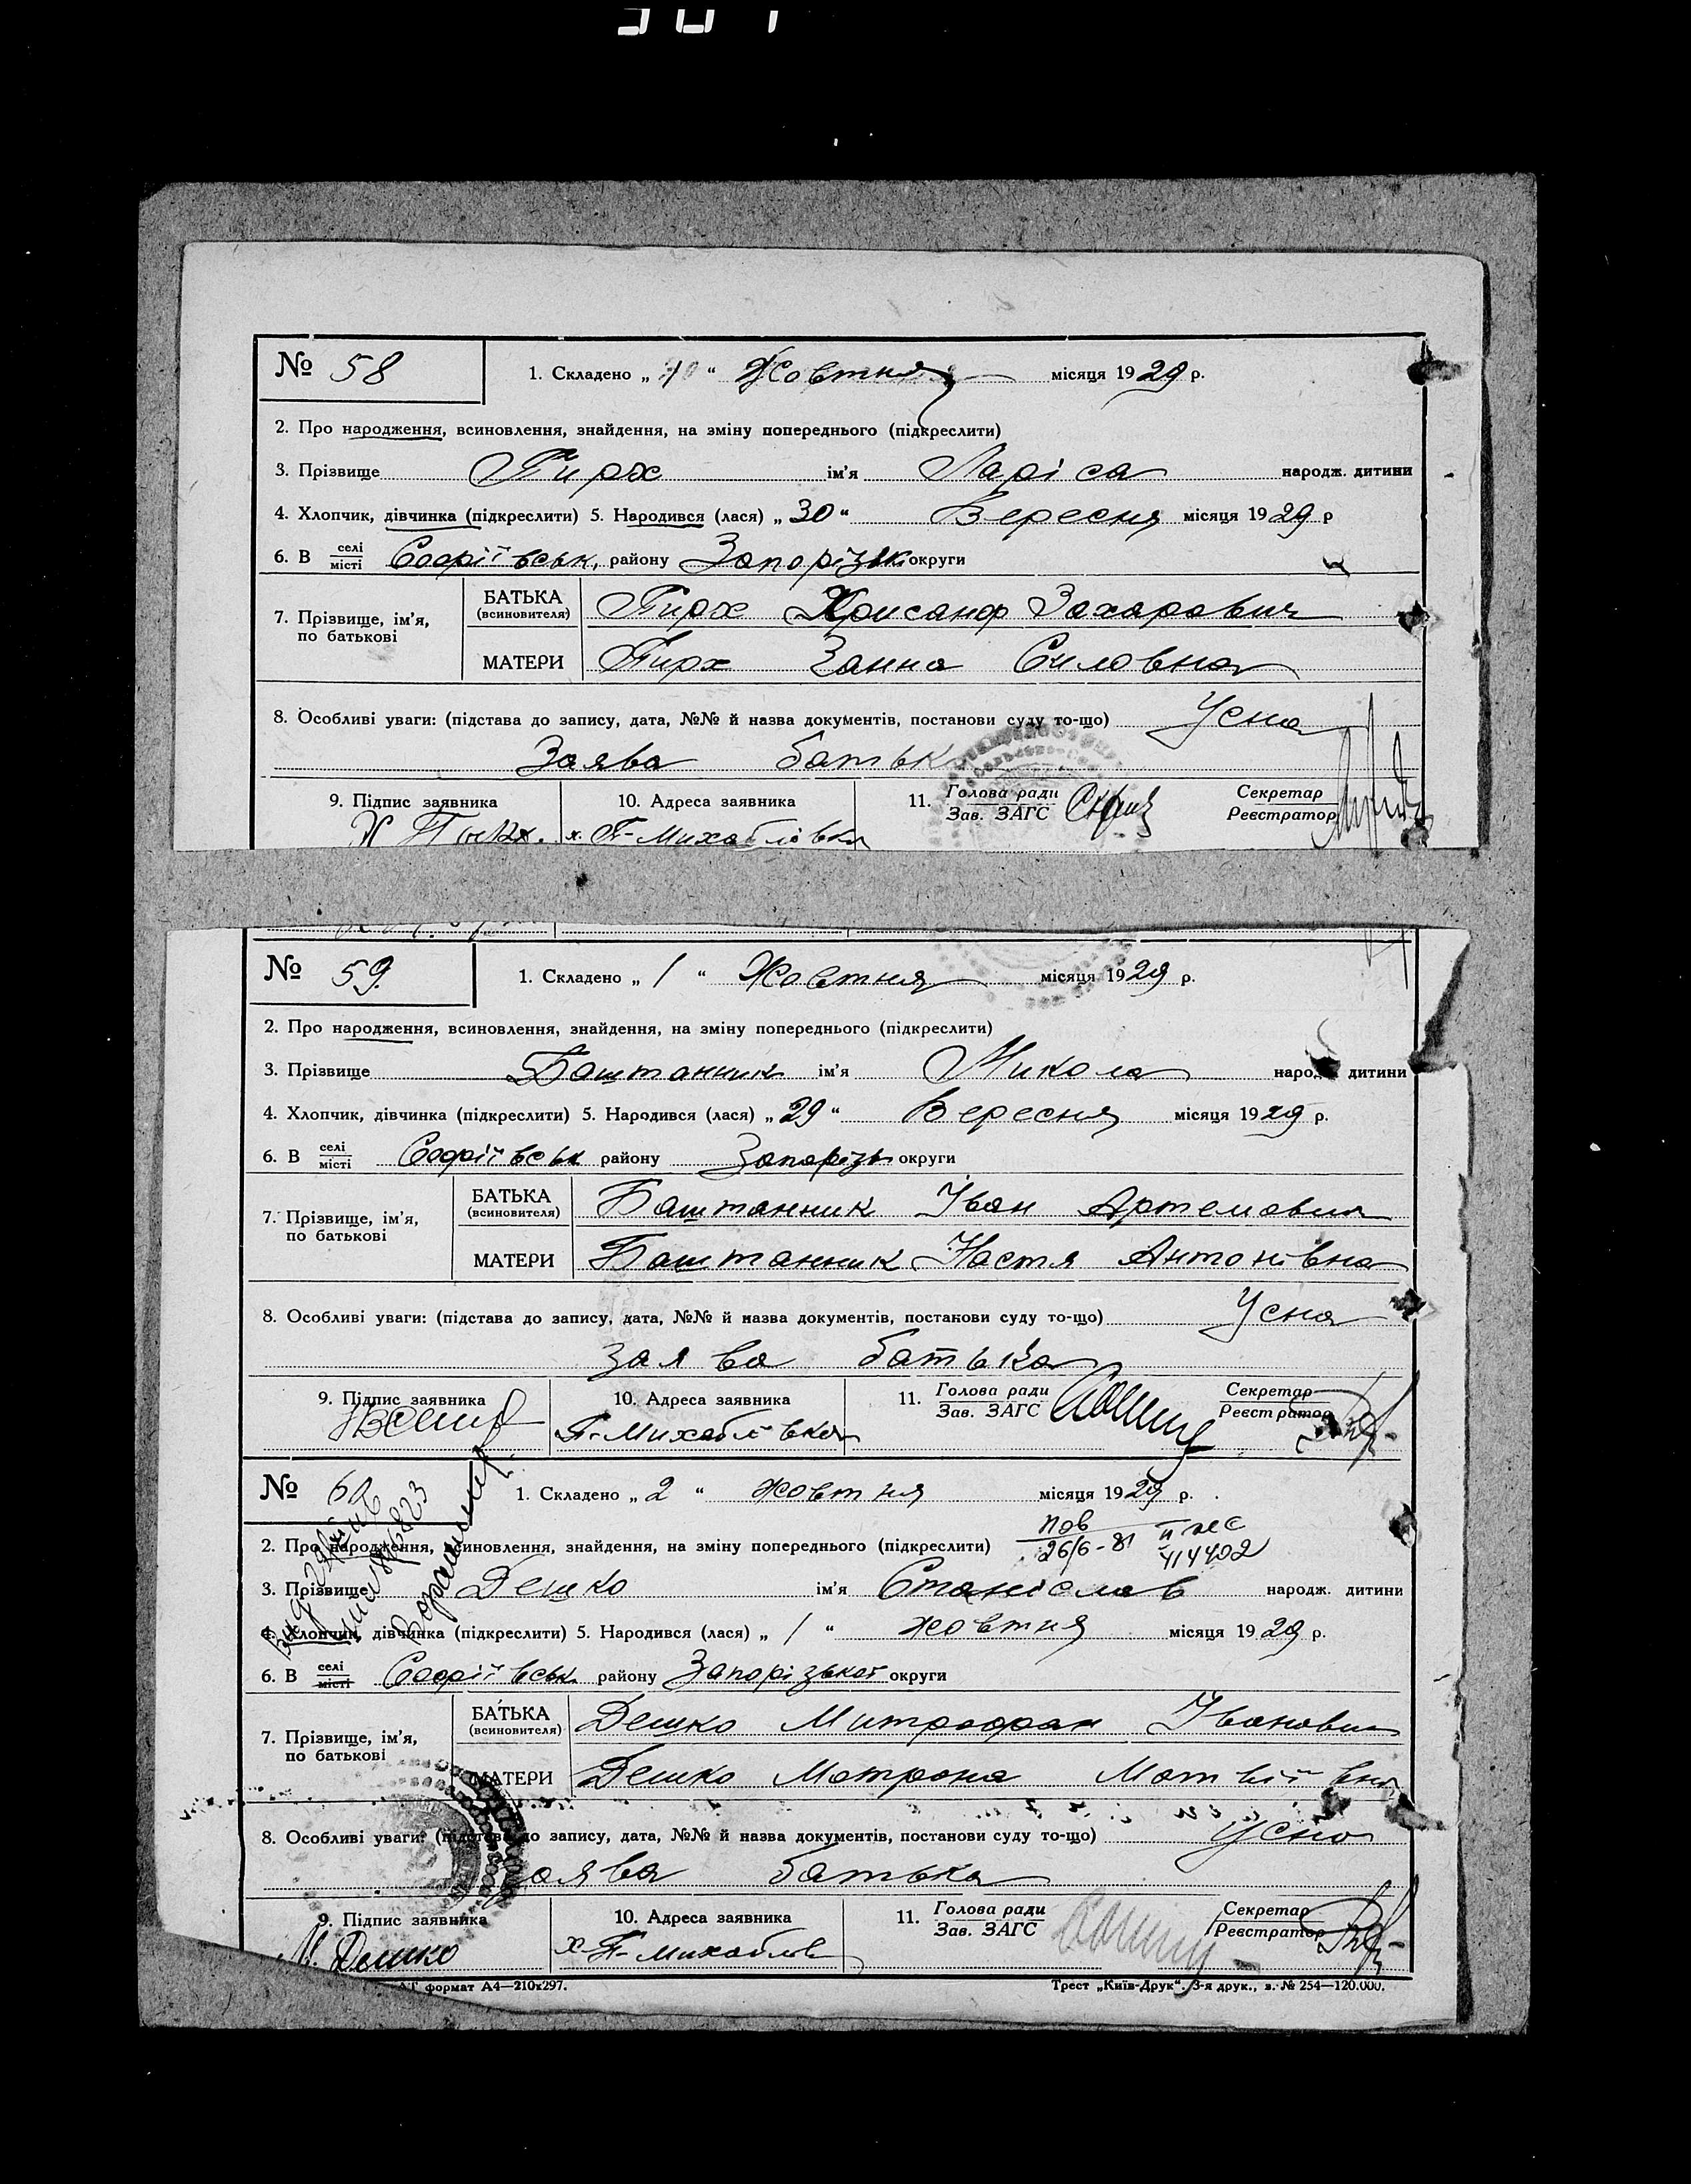 № 58 1. Складено „ 1 “ Жовтня місяця 1929 р.
2. Про народження, всиновлення, знайдення, на зміну попереднього (підкреслити)
3. Прізвище Пирх ім'я Ларіса народж. дитини
4. Хлопчик, дівчинка (підкреслити) 5. Народився (лася) „ 30 “ Вересня місяця 1929 р
6. В селі місті Софіївськ, району Запорізьк округи
7. Прізвище, ім'я, по батькові
БАТЬКА (всиновителя) Пирх Хрисанф Захарович
МАТЕРИ Пирх Ганна Силовна
8. Особливі уваги: (підстава до запису, дата, №№ й назва документів, постанови суду то-що) Усна
Заява батьк
9. Підпис заявника 10. Адреса заявника 11. Голова ради Зав. ЗАГС Секретар Реєстратор
Х Пирх. х. П-Михайлівка
№ 59. 1. Складено „ 1 “ Жовтня місяця 1929 р.
2. Про народження, всиновлення, знайдення, на зміну попереднього (підкреслити)
3. Прізвище Баштанник ім'я Микола народж. дитини
4. Хлопчик, дівчинка (підкреслити) 5. Народився (лася) „ 29 “ Вересня місяця 1929 р.
6. В селі місті Софіївськ району Запорізь округи
7. Прізвище, ім'я, по батькові
БАТЬКА (всиновителя) Баштанник Іван Артемович
МАТЕРИ Баштанник Настя Антонівна
8. Особливі уваги: (підстава до запису, дата, №№ й назва документів, постанови суду то-що) Усна
заява батька
9. Підпис заявника 10. Адреса заявника 11. Голова ради Зав. ЗАГС Секретар Реєстратор
П-Михайлівка
№ 60 1. Складено „ 2 “ жовтня місяця 1929 р.
пов 26/6-81 II 414402
2. Про народження, всиновлення, знайдення, на зміну попереднього (підкреслити)
3. Прізвище Дешко ім'я Станіслав народж. дитини
4. Хлопчик, дівчинка (підкреслити) 5. Народився (лася) „ 1 “ жовтня місяця 1929 р.
6. В селі місті Софіївськ району Запорізької округи
7. Прізвище, ім'я, по батькові
БАТЬКА (всиновителя) Дешко Митрофан Іванович
МАТЕРИ Дешко Мотрона Матвіївна
8. Особливі уваги: (підстава до запису, дата, №№ й назва документів, постанови суду то-що) Усна
заява батька
9. Підпис заявника 10. Адреса заявника 11. Голова ради Зав. ЗАГС Секретар Реєстратор
М. Дешко х-П-Михайлів
формат А4—210х297. Трест „Київ-Друк“. 3-я друк., з. № 254—120.000.